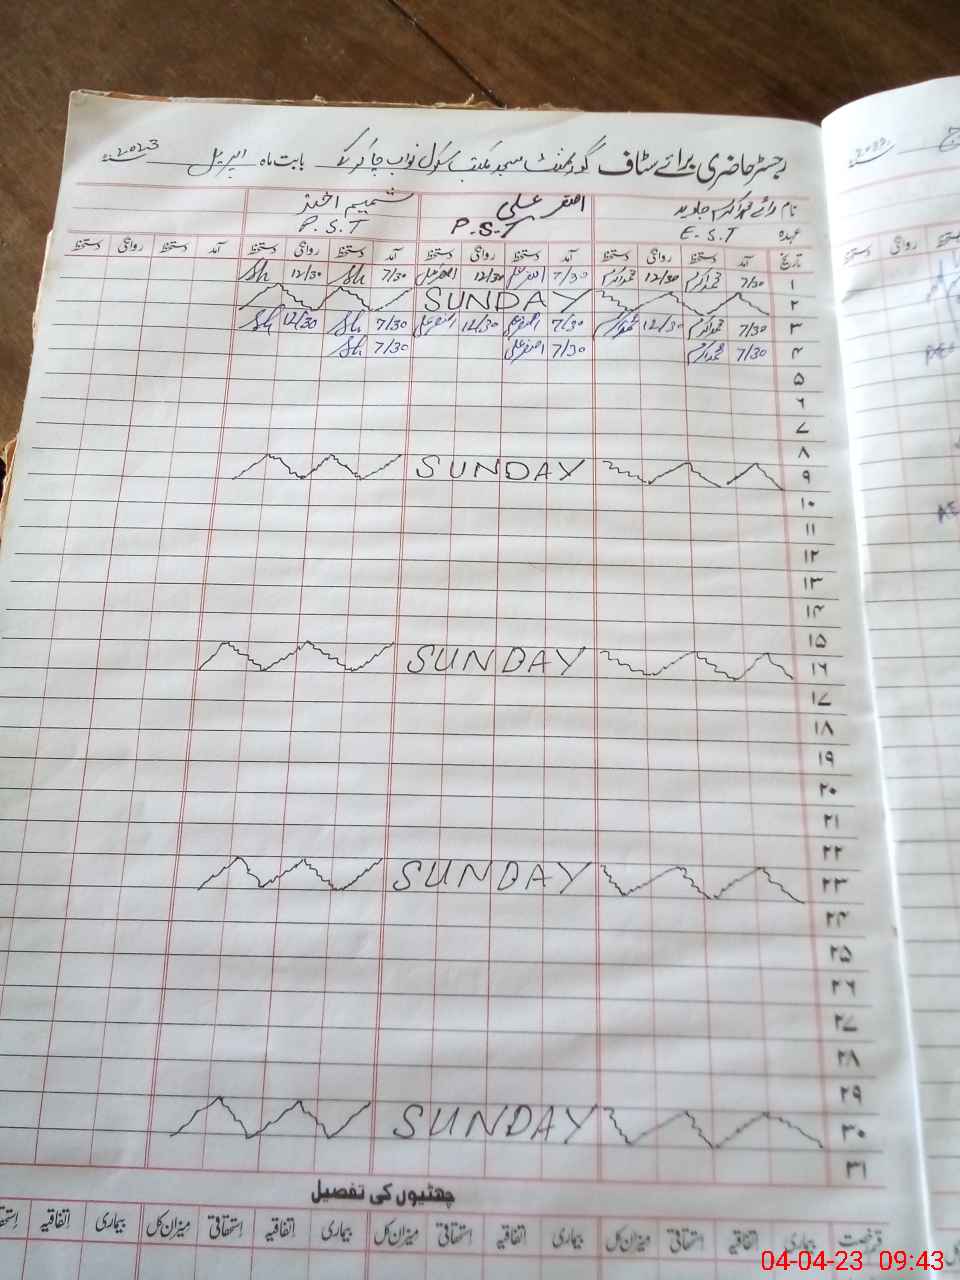 رجسٹر حاضری برائے سٹاف گورنمنٹ مسجد مکتب سکول نواب بابت ماہ اپریل 2023
نام رائے محمد اکرم جاوید اصغر علی شمیم اختر
عہدہ E.S.T P.S.T P.S.T
تاریخ آمد دستخط روانگی دستخط آمد دستخط روانگی دستخط آمد دستخط روانگی دستخط آمد دستخط روانگی دستخط
۱ 7/30 محمد اکرم 12/30 محمد اکرم 7/30 اصغر علی 12/30 اصغر علی 7/30 Sh 12/30 Sh
۲ SUNDAY
۳ 7/30 محمد اکرم 12/30 محمد اکرم 7/30 اصغر علی 12/30 اصغر علی 7/30 Sh 12/30 Sh
۴ 7/30 محمد اکرم 7/30 اصغر علی 7/30 Sh
۵
۶
۷
۸
۹ SUNDAY
۱۰
۱۱
۱۲
۱۳
۱۴
۱۵
۱۶ SUNDAY
۱۷
۱۸
۱۹
۲۰
۲۱
۲۲
۲۳ SUNDAY
۲۴
۲۵
۲۶
۲۷
۲۸
۲۹
۳۰ SUNDAY
۳۱
چھٹیوں کی تفصیل
قسم رخصت بیماری اتفاقیہ استحقاقی میزان کل بیماری اتفاقیہ استحقاقی میزان کل بیماری اتفاقیہ استحقاقی میزان کل بیماری اتفاقیہ
04-04-23 09:43